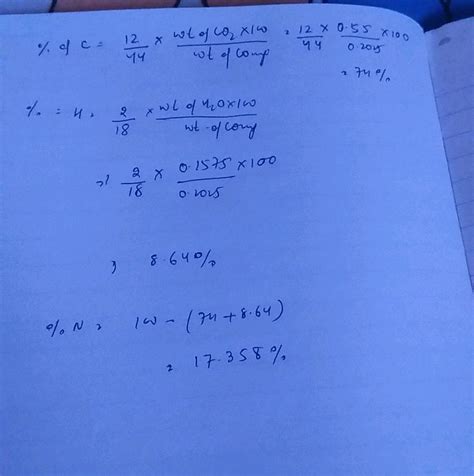 % of C = 12/44 × wt of CO2 × 100/wt of comp = 12/44 × 0.55/0.2025 × 100
= 74%
% = H = 2/18 × wt of H2O × 100/wt. of comp
=) 2/18 × 0.1575/0.2025 × 100
; 8.64%
% N = 100 - (74 + 8.64)
= 17.358%